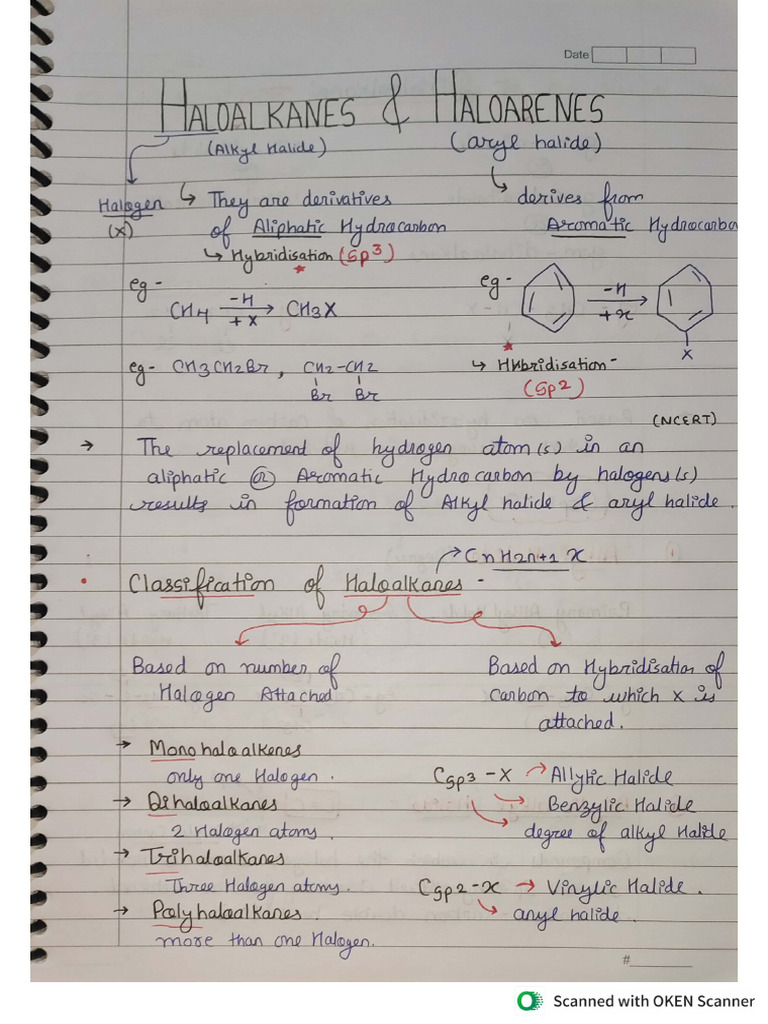 Date
HALOALKANES & HALOARENES
(Alkyl Halide) (aryl halide)
Halogen
(X)
↳ They are derivatives
of Aliphatic Hydrocarbon
↳ Hybridisation (Sp3)
↳ derives from
Aromatic Hydrocarbo
eg -
CH4 -H +X → CH3X
eg -
-H +x →
X
eg- CH3CH2Br, CH2-CH2
Br Br
↳ Hybridisation -
(Sp2)
(NCERT)
→ The replacement of hydrogen atom(s) in an
aliphatic or Aromatic Hydrocarbon by halogens(s)
results in formation of Alkyl halide & aryl halide.
→ CnH2n+1 X
• Classification of Haloalkanes -
Based on number of
Halogen Attached
→ Monohaloalkenes
only one Halogen.
→ Dihaloalkanes
2 Halogen atoms.
→ Trihaloalkanes
Three Halogen atoms.
→ Polyhaloalkanes
more than one Halogen.
Based on Hybridisation of
carbon to which x is
attached.
Csp3 - X → Allylic Halide
→ Benzylic Halide
→ degree of alkyl Halide
Csp2 - x → Vinylic Halide.
→ aryl halide.
#
Scanned with OKEN Scanner